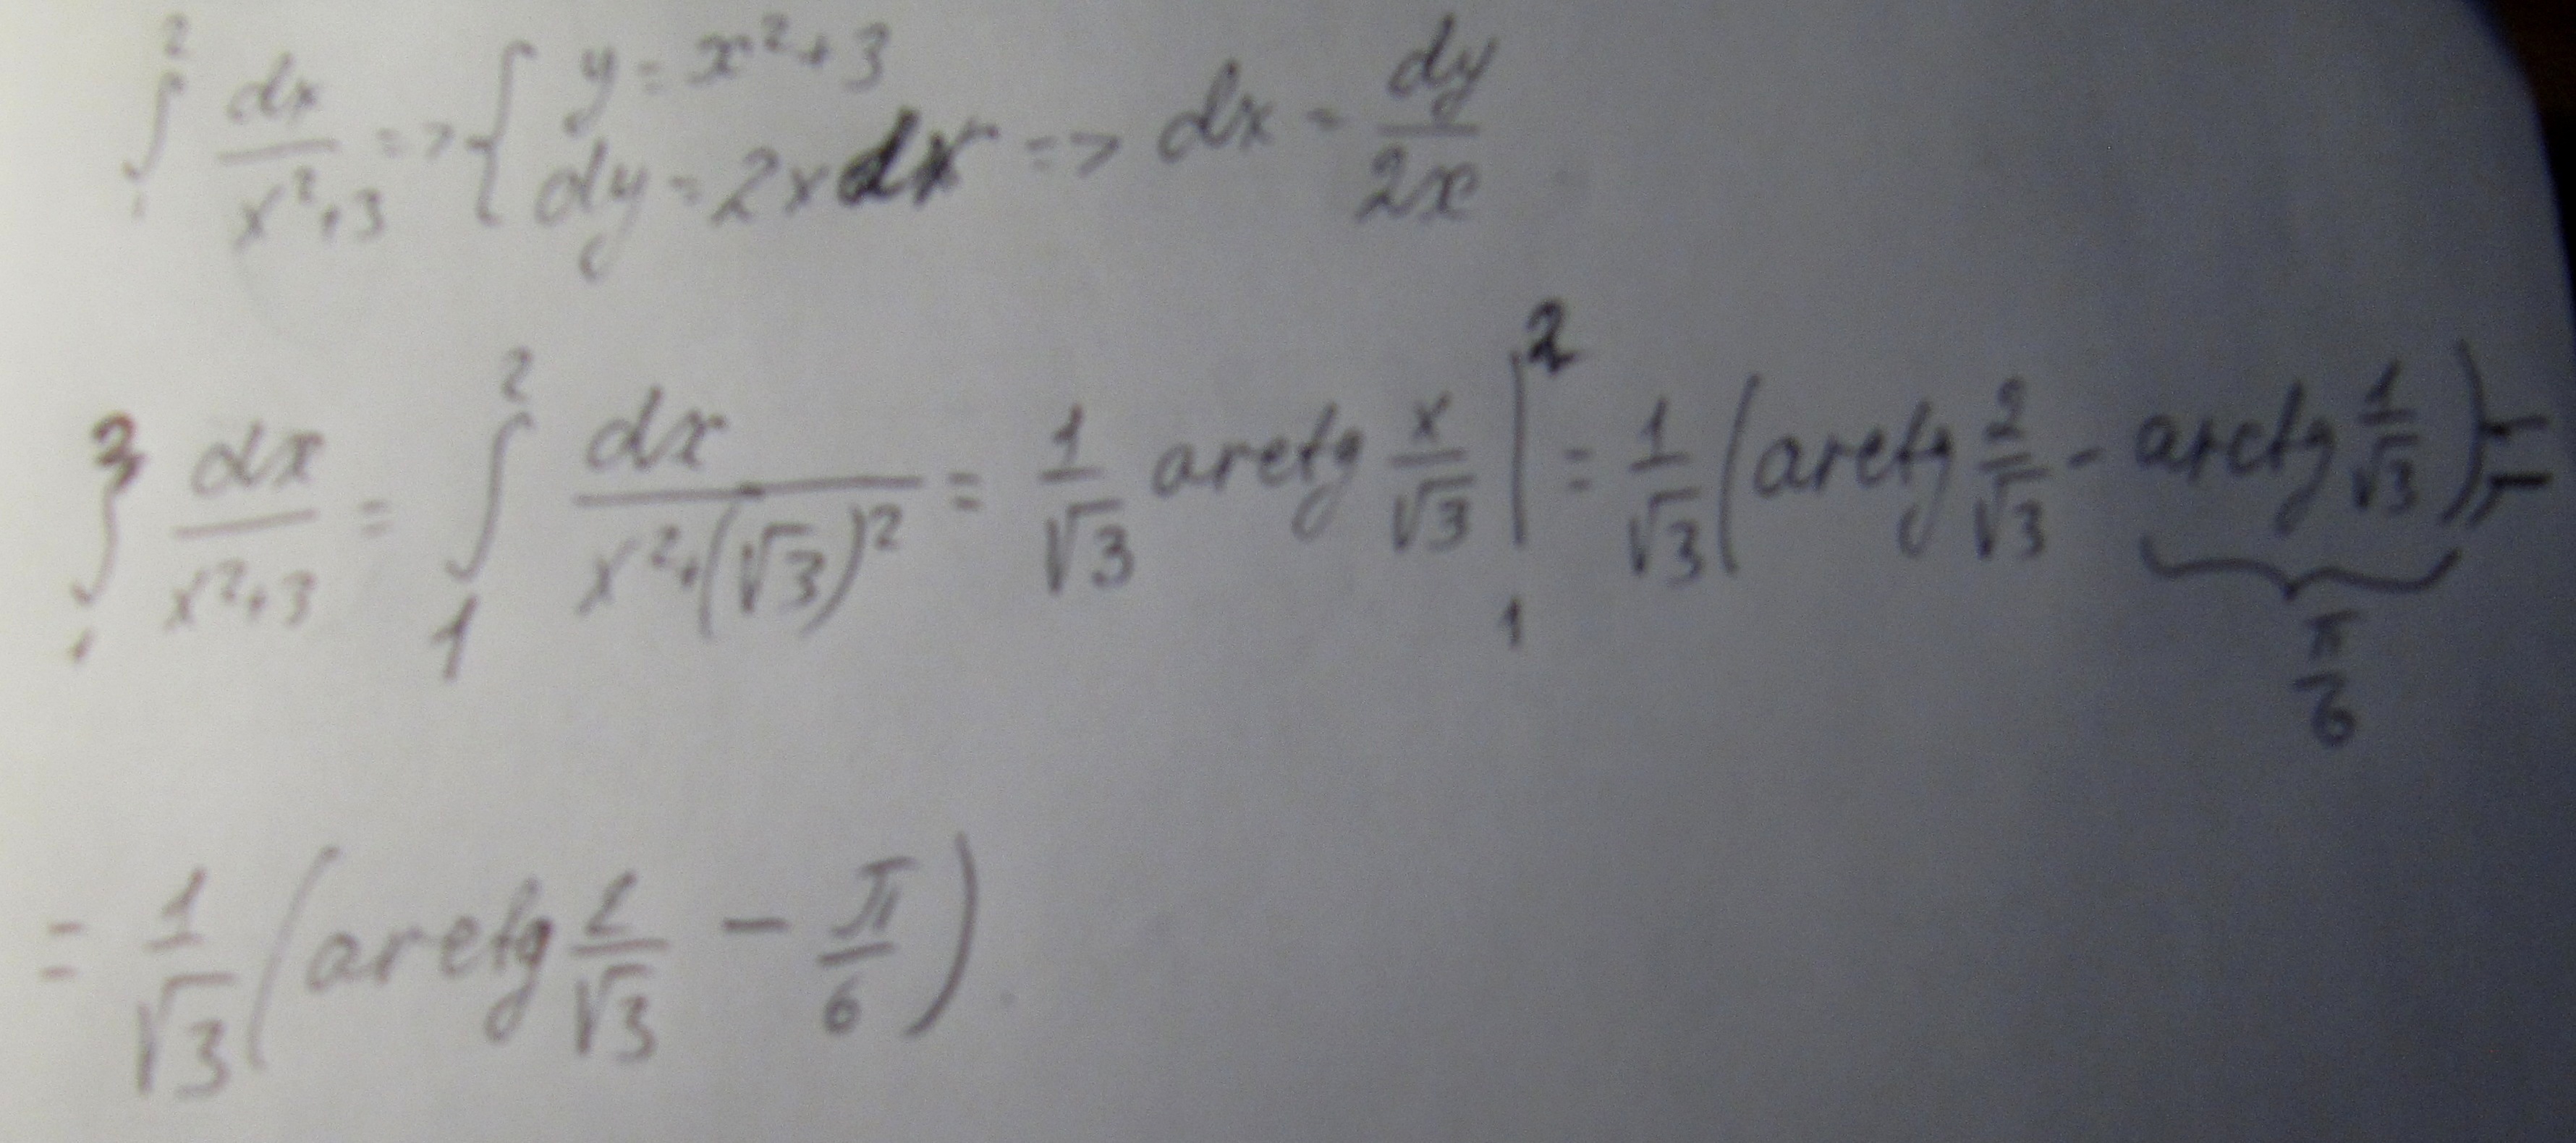 ∫₁² dx/(x²+3) => { y = x²+3
dy = 2x dx => dx = dy/(2x)
∫₁² dx/(x²+3) = ∫₁² dx/(x²+(√3)²) = 1/√3 arctg x/√3 |₁² = 1/√3 (arctg 2/√3 - arctg 1/√3) =
π/6
= 1/√3 (arctg 2/√3 - π/6)